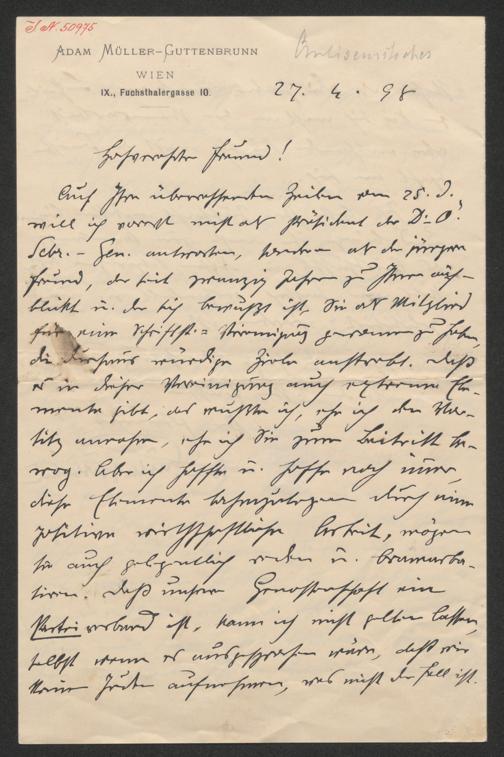 I. N. 50975
Antisemitisches
ADAM MÜLLER-GUTTENBRUNN
WIEN
IX., Fuchsthalergasse 10.
27. 4. 98
Hochverehrter Freund!
Auf Ihre überraschenden Zeilen vom 25. d.
will ich vorerst nicht als Präsident der D.-Ö.
Schr.-Gen. antworten, sondern als der jüngere
Freund, der seit zwanzig Jahren zu Ihnen auf-
blickt u. der sich bewußt ist, Sie als Mitglied
für eine Schriftst.=Vereinigung gewonnen zu haben,
die durchaus würdige Ziele anstrebt. Daß
es in dieser Vereinigung auch extreme Ele-
mente gibt, das wußte ich, ehe ich den Vor-
sitz annahm, ehe ich Sie zum Beitritt be-
wog. Aber ich hoffte u. hoffe noch immer,
diese Elemente lahmzulegen durch eine
positive wirthschaftliche Arbeit, mögen
sie auch gelegentlich reden u. bramarba-
siren. Daß unsere Genossenschaft ein
Parteiverband ist, kann ich nicht gelten lassen,
selbst wenn es ausgesprochen wäre, daß wir
keine Juden aufnehmen, was nicht der Fall ist.